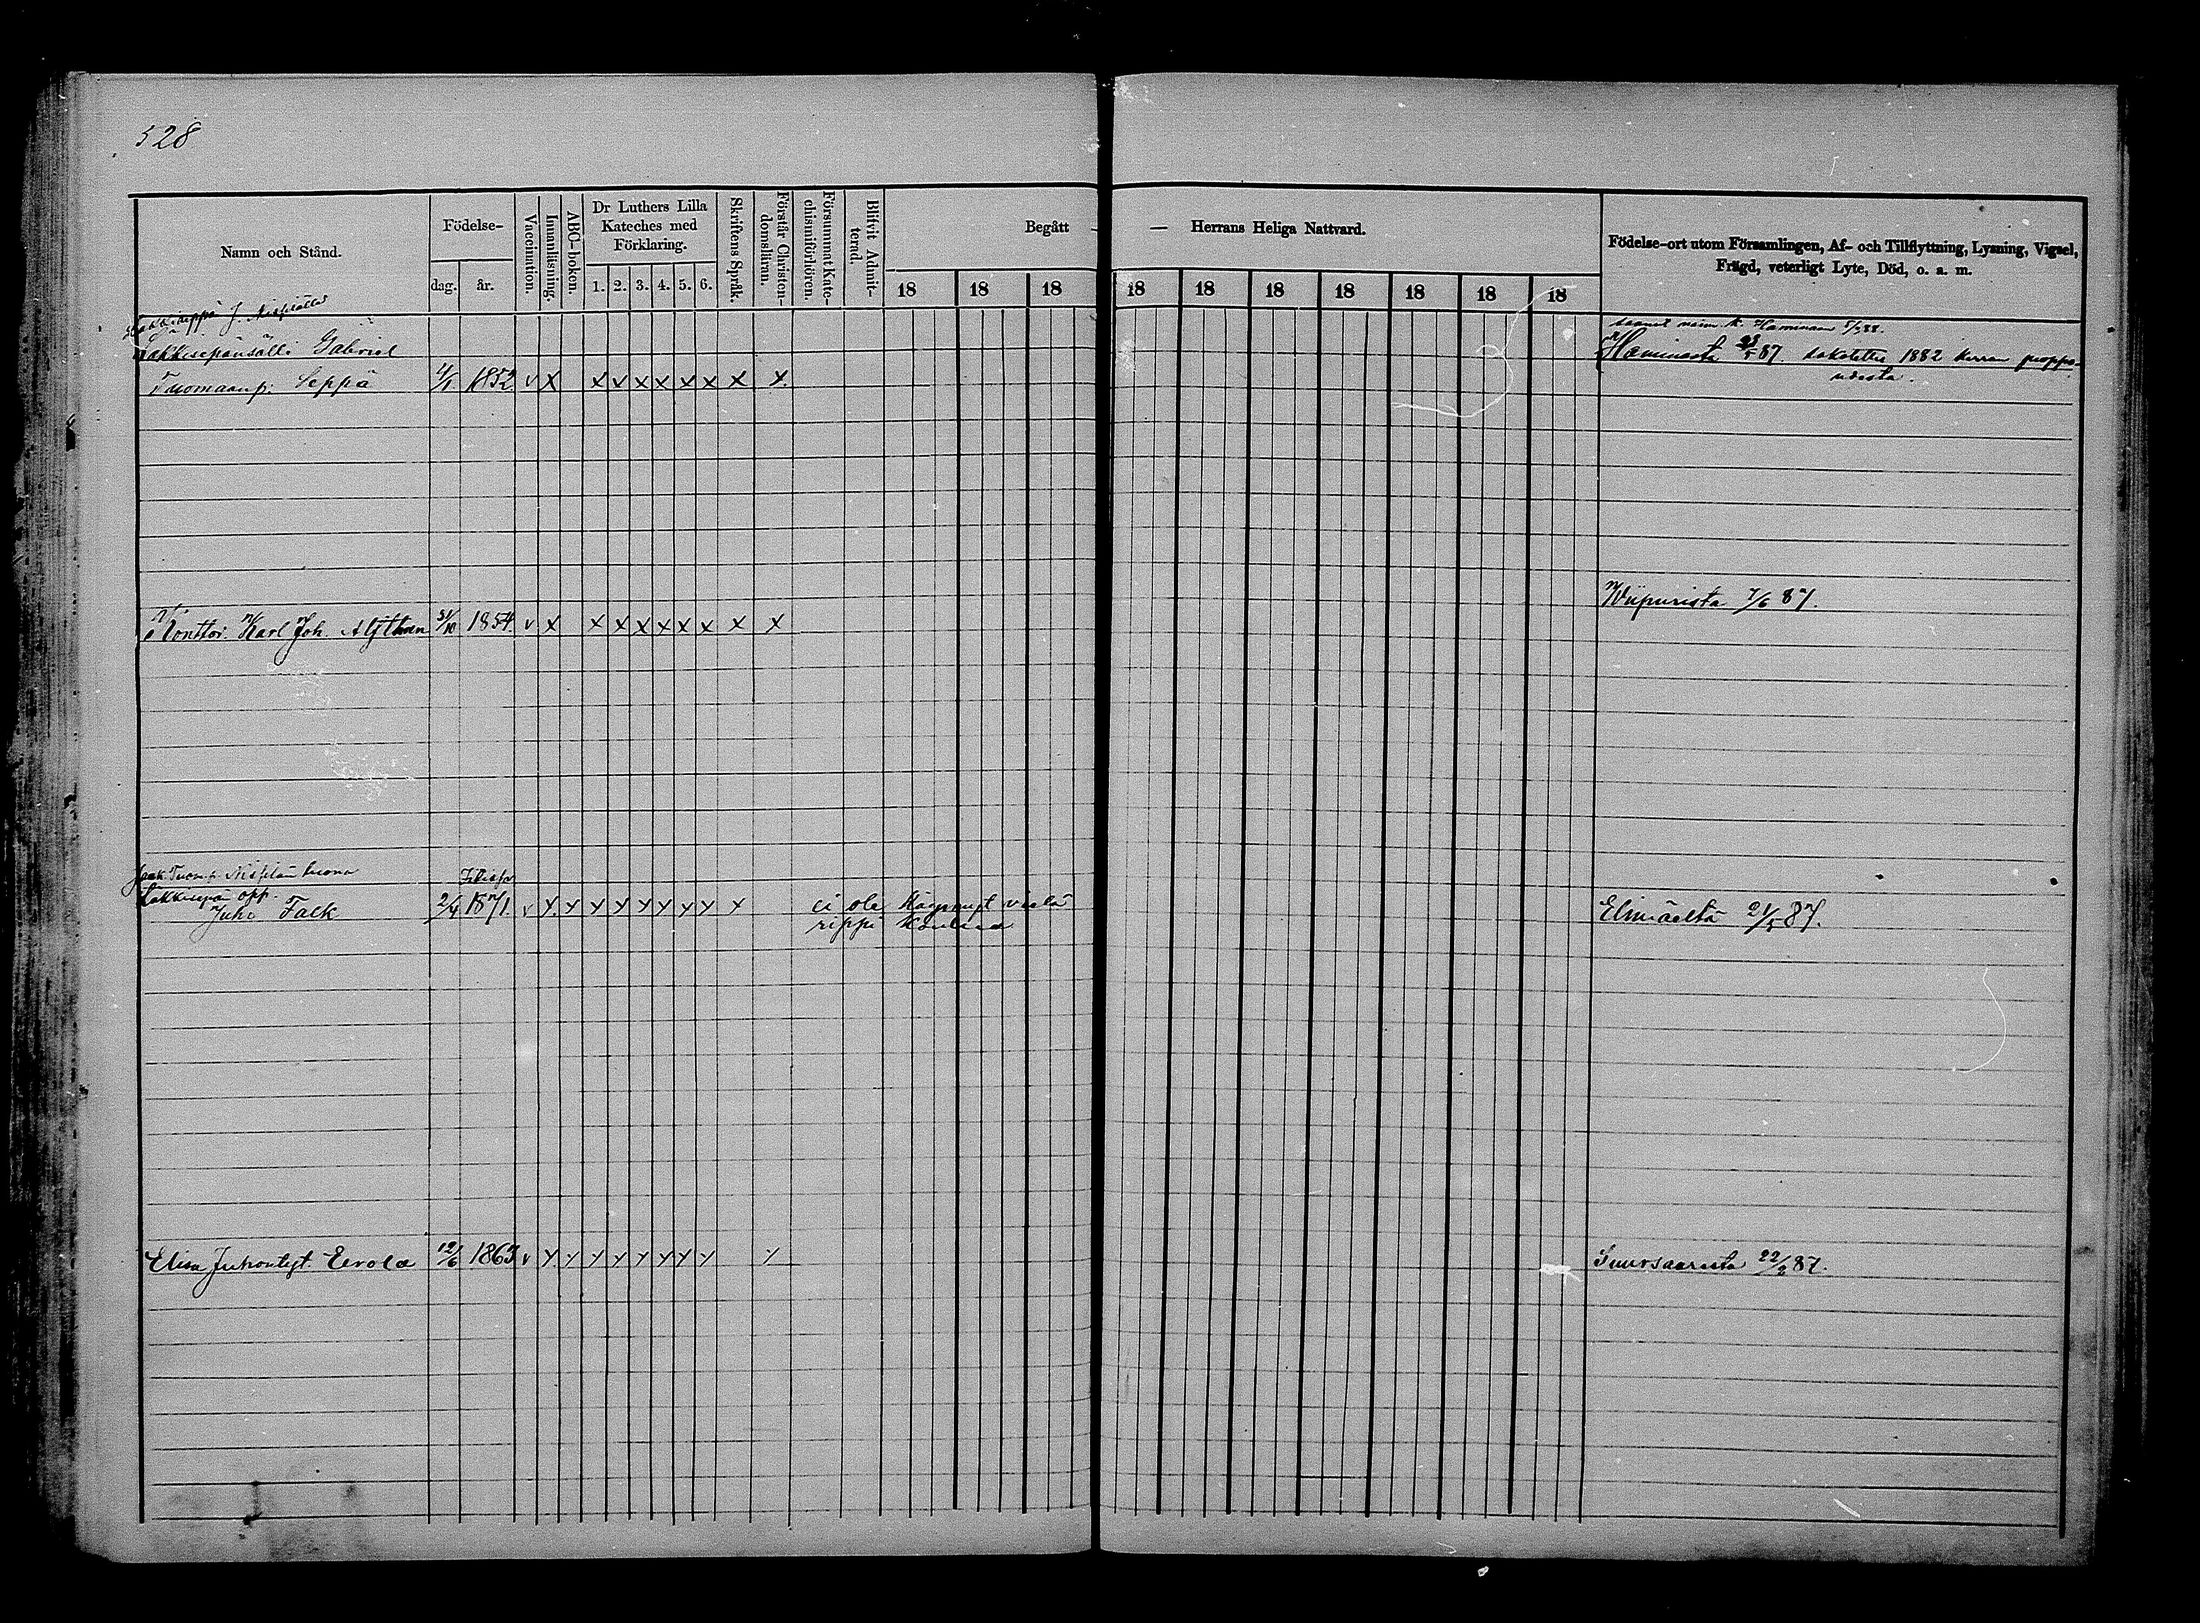 528
Namn och Stånd.
Födelse-
dag.
år.
Vaccination.
Innanläsning.
ABC-boken.
Dr Luthers Lilla
Kateches med
Förklaring.
1. 2. 3. 4. 5. 6.
Skriftens Språk.
Förstår Christen-
domsläran.
Försummat Kate-
chismiförhören.
Blifvit Admit-
terad
Begått — — Herrans Heliga Nattvard.
18 18 18 18 18 18 18 18 18 18
Födelse-ort utom Församlingen, Af- och Tillflyttning, Lysning, Vigsel,
Frägd, veterligt Lyte, Död, o. a. m.
Gabriel
Tuomaanp. Seppä 4/1 1852 v x x v x x x x x x.
Haminasta 23/5 87 1882 kerran
Konttor. Karl Joh. Alfthan 31/10 1854. v x x x x x x x x x
Wiipurista 7/6 87.
opp.
Juho Falk 2/4 1871. v x x x x x x x x x
ei ole käynyt vielä
rippi koulua
Elimäeltä 21/5 87.
Elisa Juhontyt. Eerola 12/6 1863 v x x x x x x x x x
Suursaaresta 22/2 87.